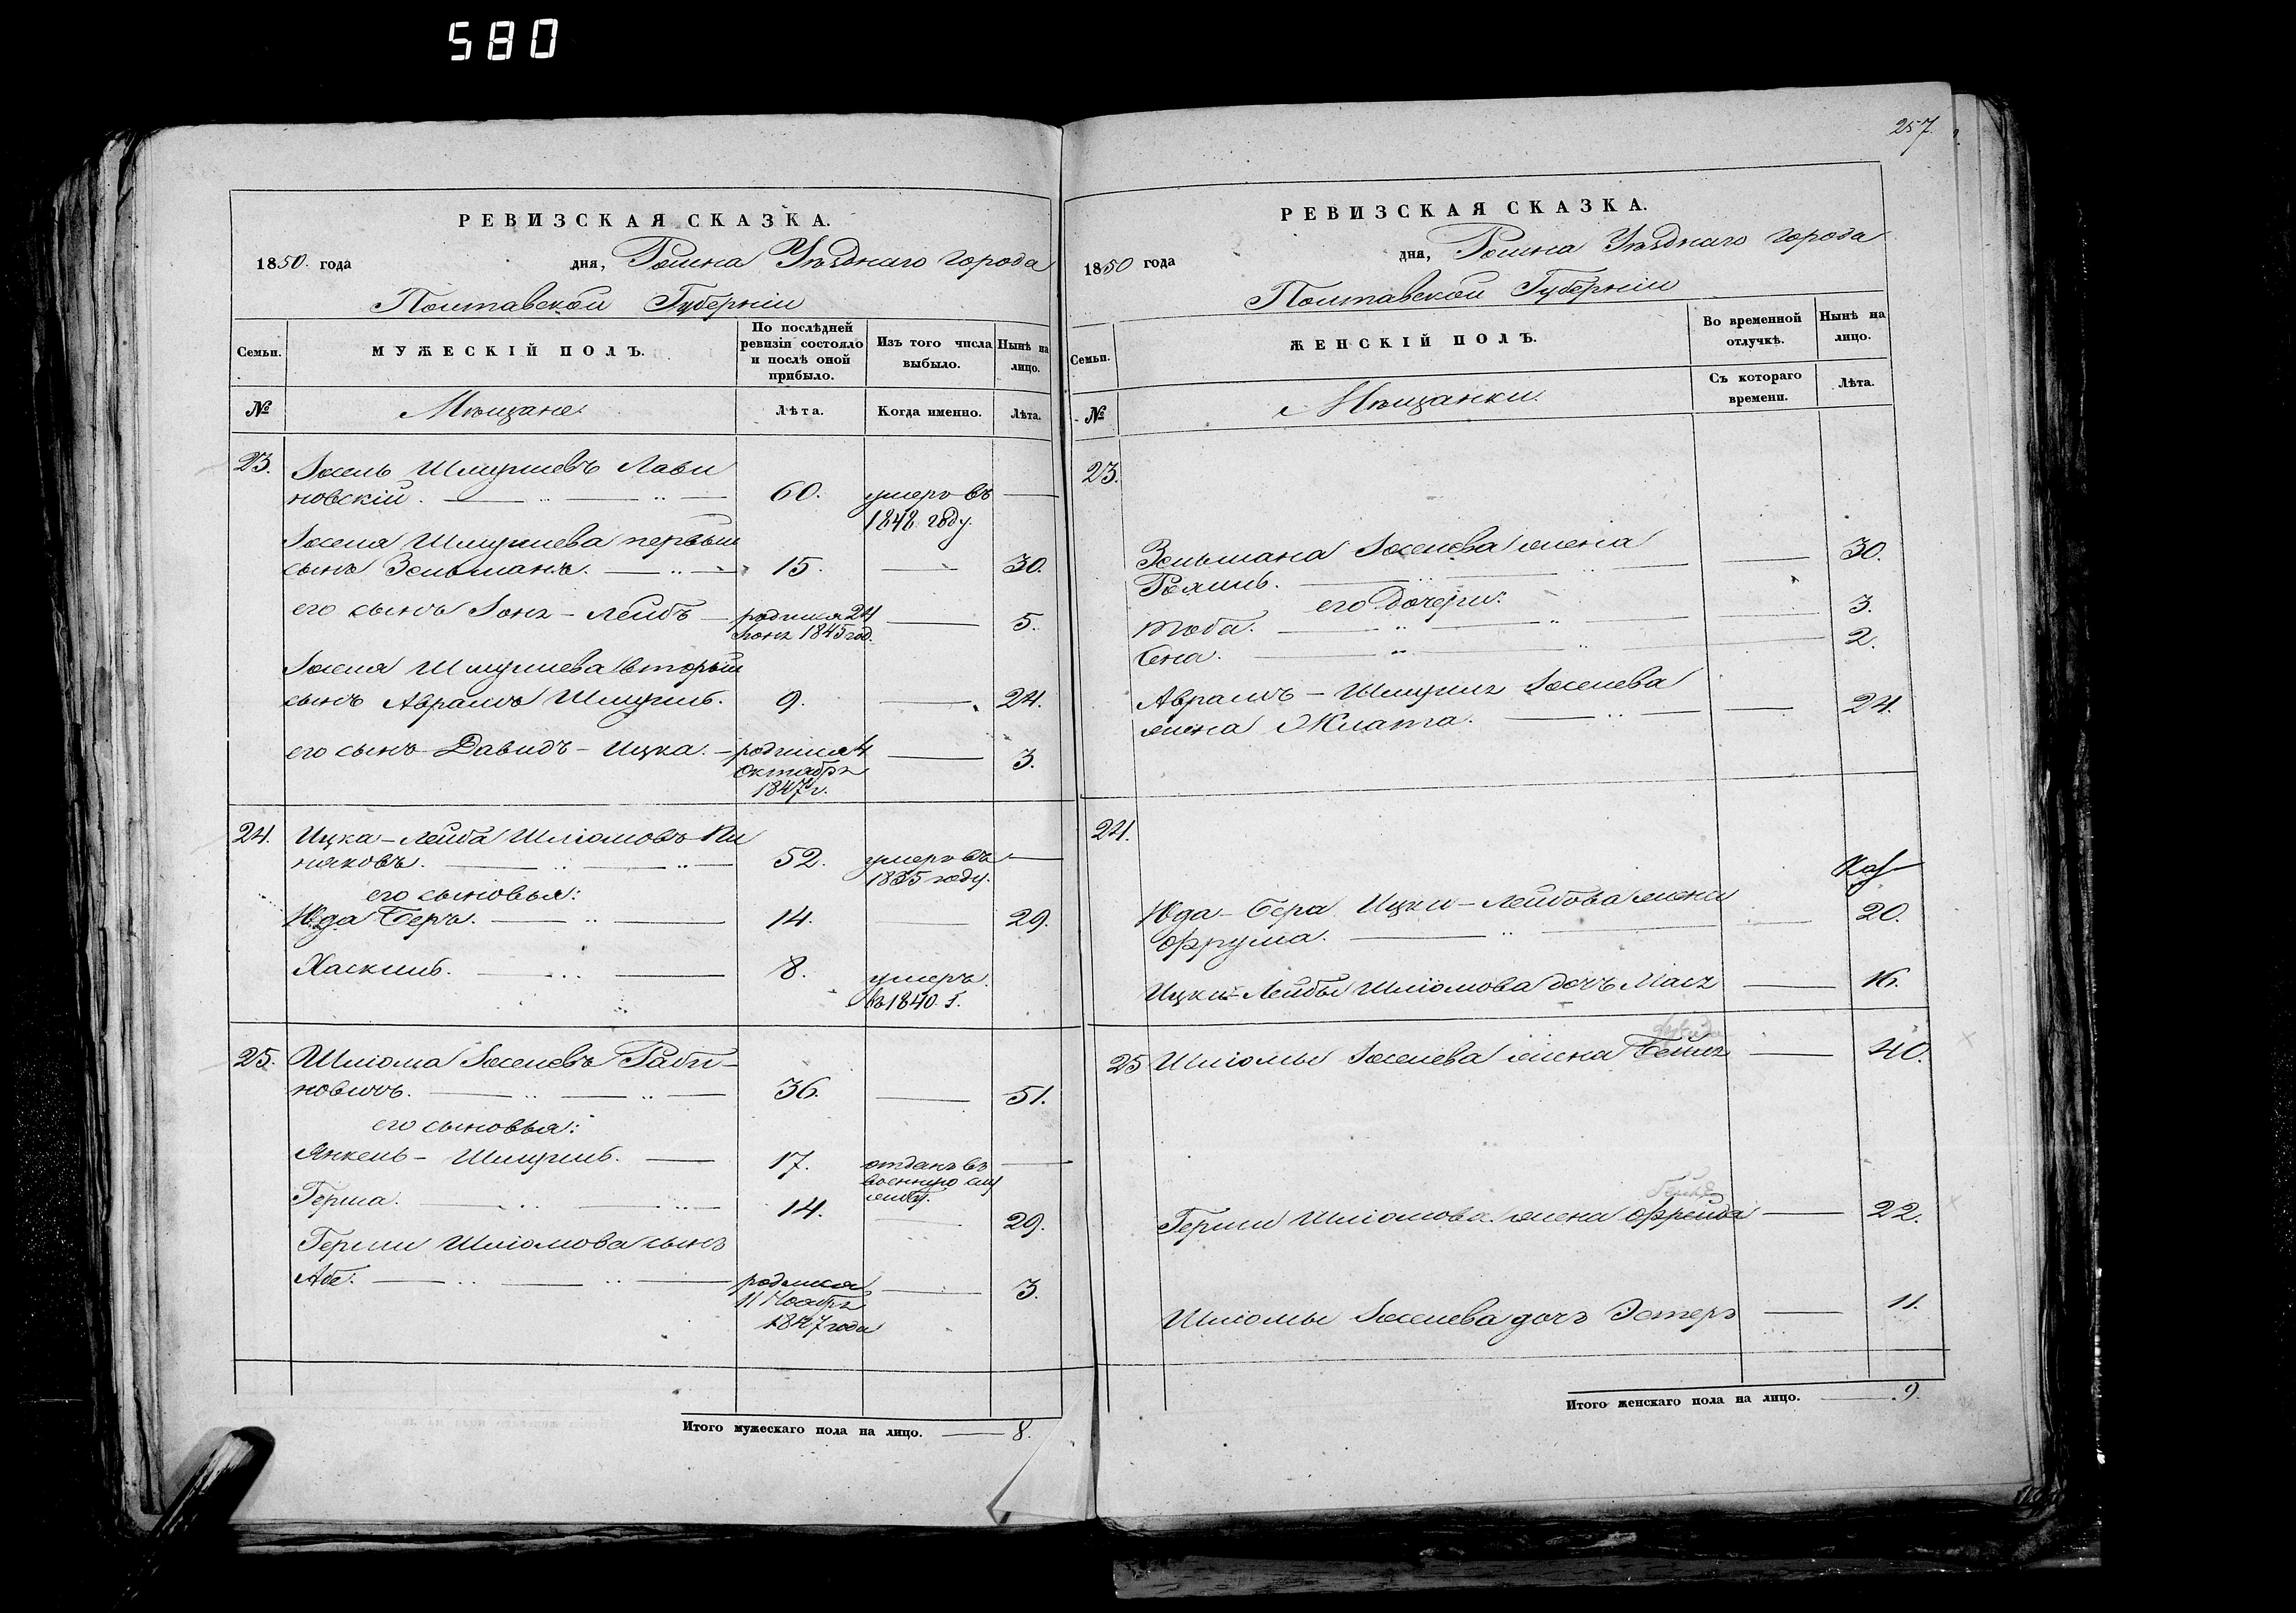 580
257.
РЕВИЗСКАЯ СКАЗКА.
1850. года дня, Ромна Уѣзднаго города
Полтавской Губерніи
Семьи. МУЖЕСКІЙ ПОЛЪ. По послѣдней ревизіи состояло и послѣ оной прибыло. Изъ того числа выбыло. Нынѣ на лицо.
№ Мѣщане. Лѣта. Когда именно. Лѣта.
23. Іосель Шмуилевъ Лави
новскій. 60. умеръ въ
1848 году.
Іоселя Шмуилева первый
сынъ Зельманъ. 15. 30.
его сынъ Іонъ-Лейбъ родился 24 5.
1845 год.
Іоселя Шмуилева вторый
сынъ Аврамъ Шмуиль. 9. 24.
его сынъ Давидъ-Ицка. родился 4 3.
октября
1847 г.
24. Ицка-Лейба Шліомовъ
няковъ. 52. умеръ въ
1835 году.
его сыновья:
Юда Беръ. 14. 29.
Хаскиль. 8. умеръ
въ 1840 г.
25. Шліома Іоселевъ Раби-
новичъ. 36. 51.
его сыновья:
Янкель-Шмуиль. 17. отданъ въ
военную слу
жбу.
Герша. 14. 29.
Герши Шліомова сынъ
Абе. родился 3.
11 Ноября
1847 года
Итого мужескаго пола на лицо. 8.
РЕВИЗСКАЯ СКАЗКА.
1850 года дня, Ромна Уѣзднаго города
Полтавской Губерніи
Семьи. ЖЕНСКІЙ ПОЛЪ. Во временной отлучкѣ. Нынѣ на лицо.
№ Мѣщанки. Съ котораго времени. Лѣта.
23.
Зельмана Іоселева жена 30.
его дочери:
Тоба. 3.
2.
Аврамъ-Шмуиля Іоселева
жена Злата. 24.
24.
Юда-Бера Ицки-Лейбова жена
Фрума. 20.
Ицки-Лейбы Шліомова дочь 16.
25 Шліомы Іоселева жена Бейля 40.
Герши Шліомова жена Фрейда 22.
Шліомы Іоселева дочь Эстеръ 11.
Итого женскаго пола на лицо. 9.